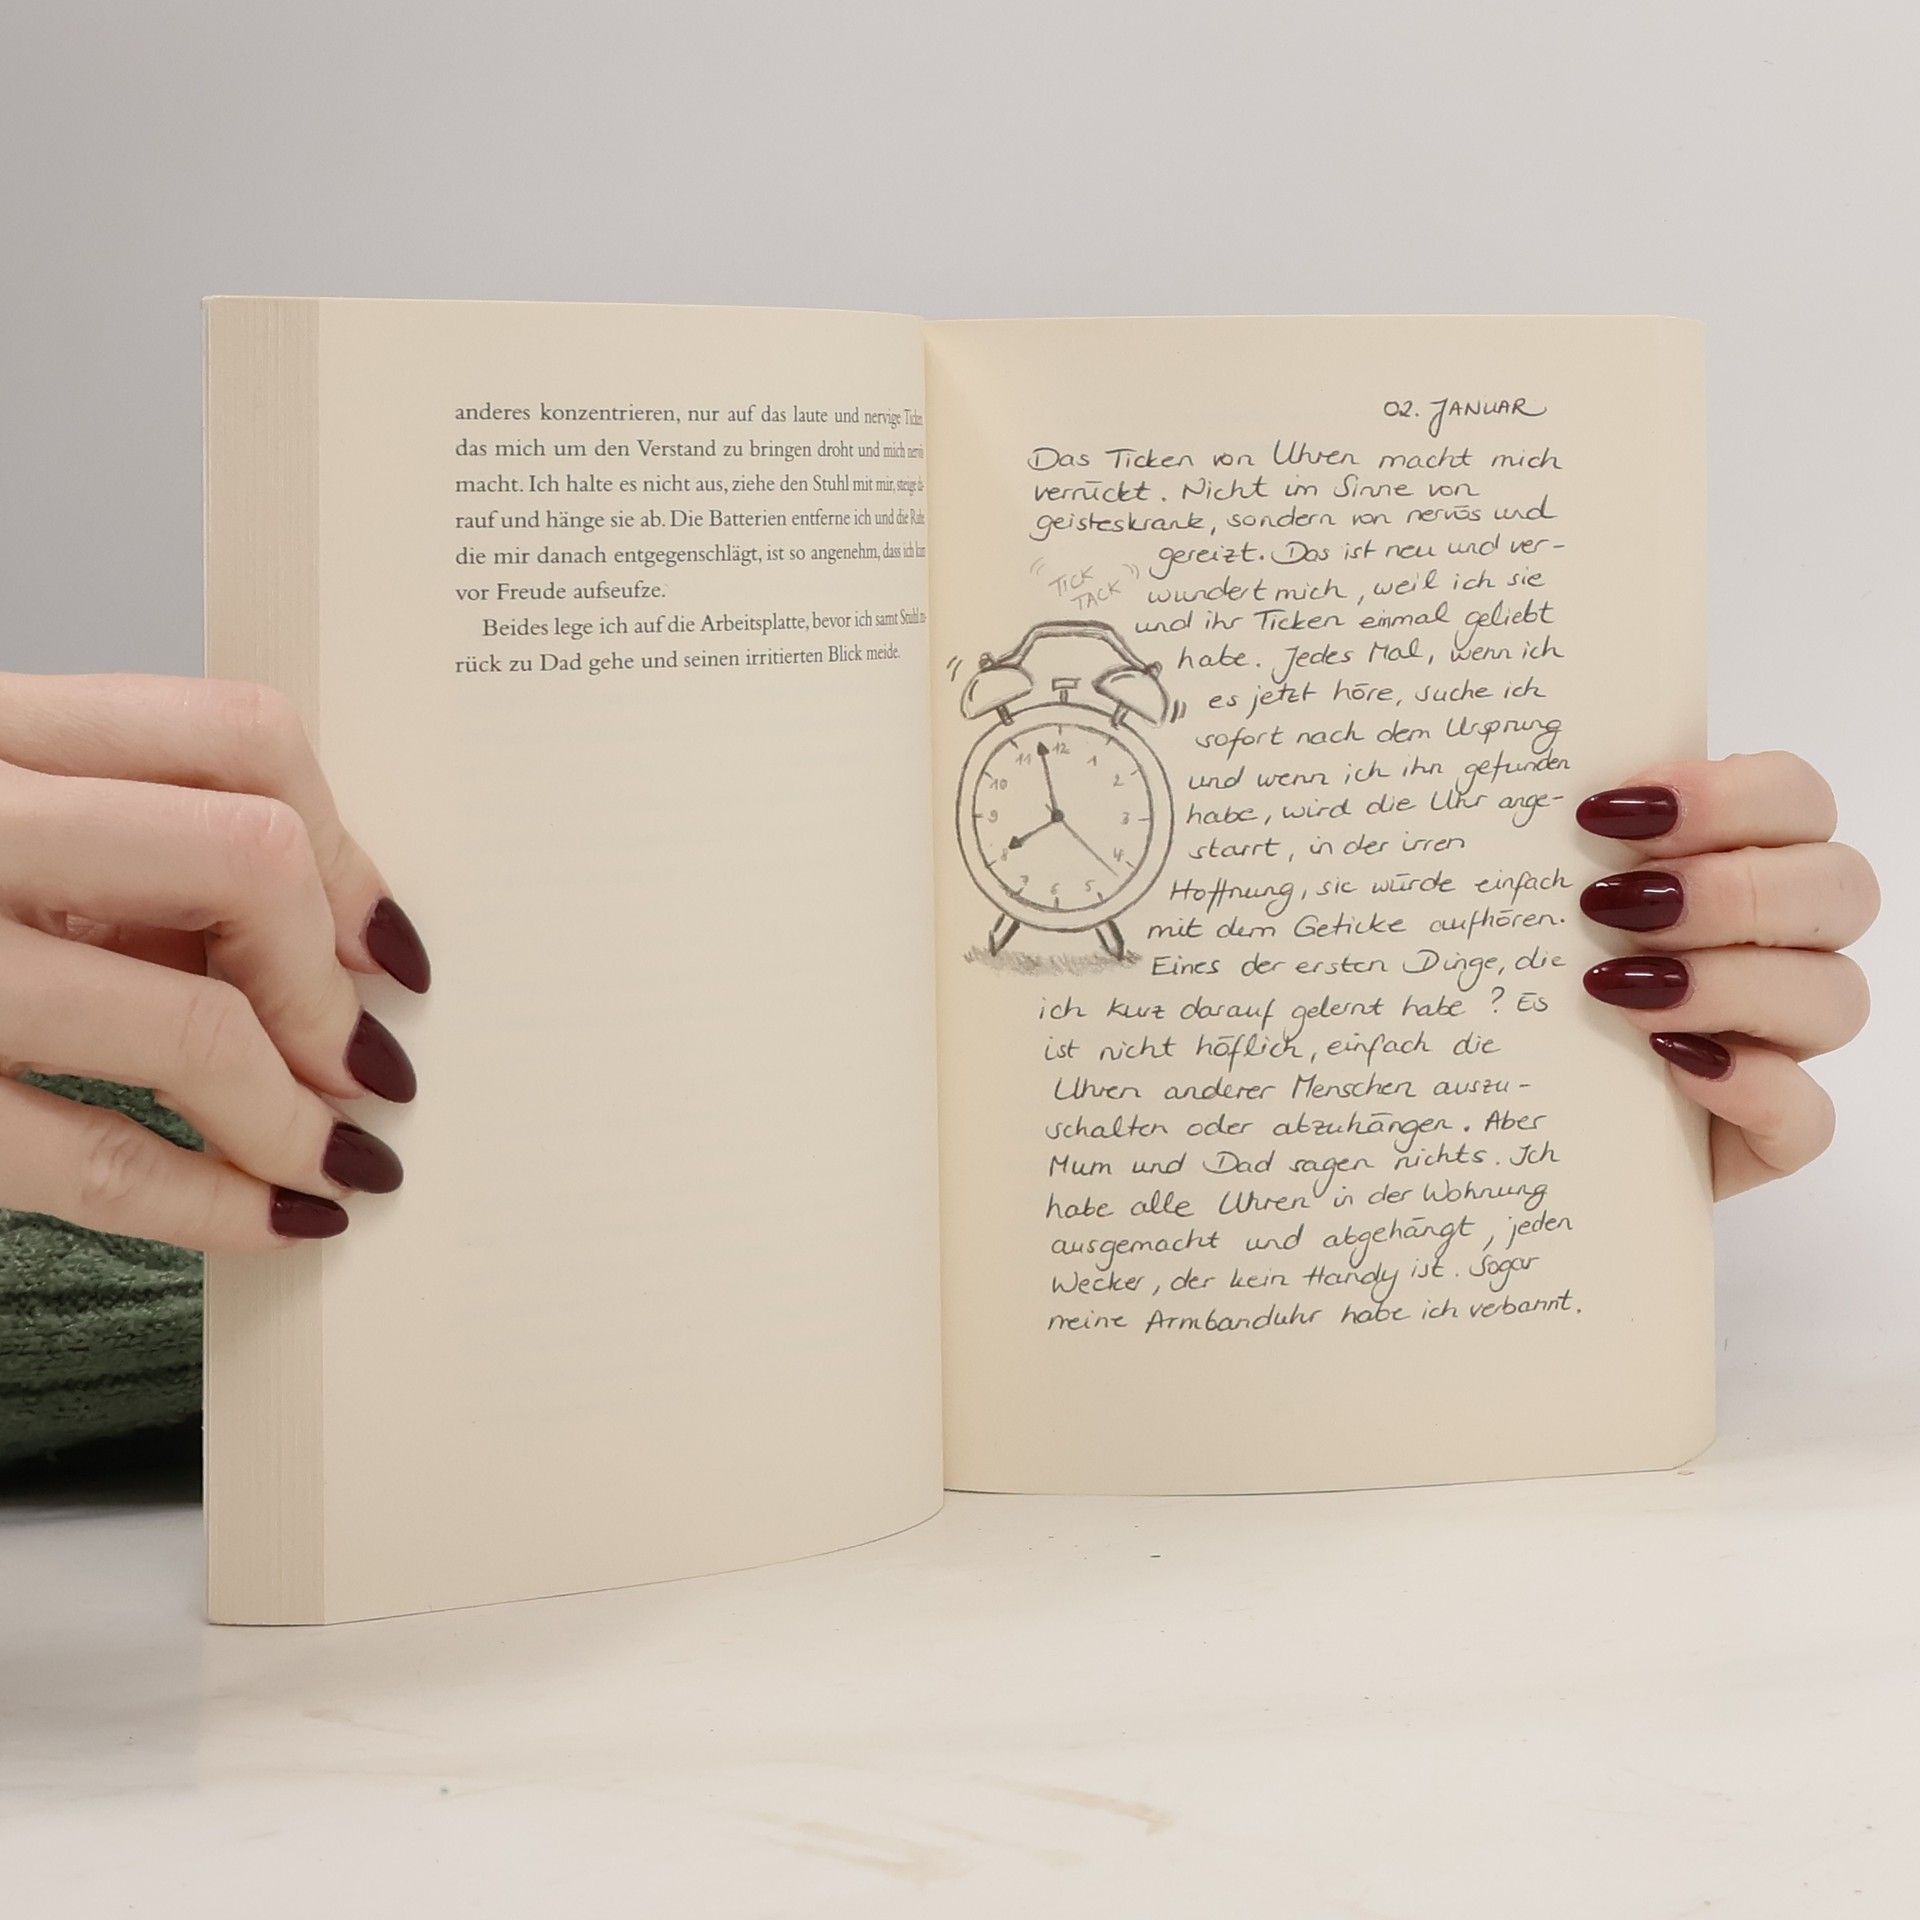 anderes konzentrieren, nur auf das laute und nervige Ticken
das mich um den Verstand zu bringen droht und mich
macht. Ich halte es nicht aus, ziehe den Stuhl mit mir, steige da-
rauf und hänge sie ab. Die Batterien entferne ich und die Ruhe
die mir danach entgegenschlägt, ist so angenehm, dass ich
vor Freude aufseufze.
Beides lege ich auf die Arbeitsplatte, bevor ich samt Stuhl zu-
rück zu Dad gehe und seinen irritierten Blick meide.
02. JANUAR
Das Ticken von Uhren macht mich
verrückt. Nicht im Sinne von
geisteskrank, sondern von nervös und
gereizt. Das ist neu und ver-
wundert mich, weil ich sie
und ihr Ticken einmal geliebt
habe. Jedes Mal, wenn ich
es jetzt höre, suche ich
sofort nach dem Ursprung
und wenn ich ihn gefunden
habe, wird die Uhr ange-
starrt, in der irren
Hoffnung, sie würde einfach
mit dem Geticke aufhören.
Eines der ersten Dinge, die
ich kurz darauf gelernt habe? Es
ist nicht höflich, einfach die
Uhren anderer Menschen auszu-
schalten oder abzuhängen. Aber
Mum und Dad sagen nichts. Ich
habe alle Uhren in der Wohnung
ausgemacht und abgehängt, jeden
Wecker, der kein Handy ist. Sogar
meine Armbanduhr habe ich verbannt.
TICK
TACK
12
1
2
3
4
5
6
7
8
9
10
11